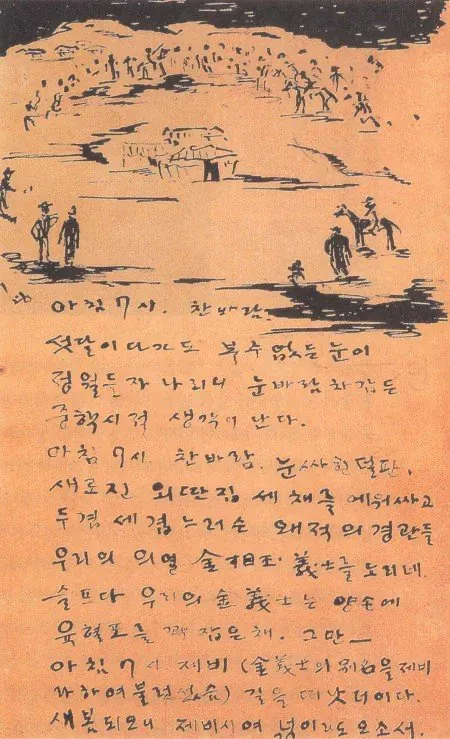 아침 7시. 찬바람.
섯달이 다가도 볼수 없든 눈이
정월들자 나리니 눈바람 차갑든
중학시적 생각이 난다.
아침 7시. 찬바람. 눈싸힌 벌판,
새로진 외딴집 세 채를 에워싸고
두겹 세겹 느러슨 왜적의 경관들
우리의 의열 金相玉 義士를 노리네.
슬프다 우리의 金義士는 양손에
육혈포를 꽉 잡은 채. 그만—
아침 7시 제비 (金義士의 別名을 제비
라 하여 불럿섯슴) 길을 떠낫더이다.
새봄되오니 제비시여 넋이라도 오소서.